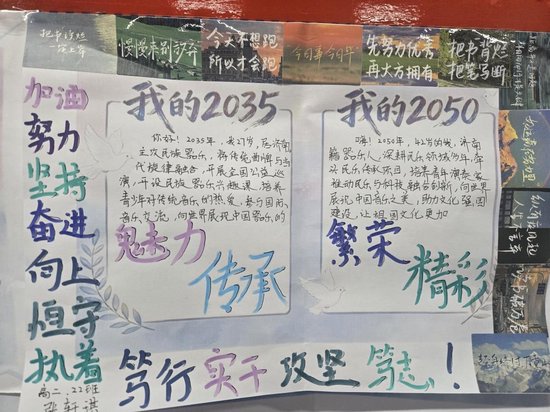 把书读烂
慢慢来别放弃
今天不想跑
所以才会跑
今日事今日毕
先努力优秀
再大方拥有
把书背烂
把笔写断
加油
努力
坚持
奋进
向上
恒守
执着
我的2035
你好！2035年，我27岁，是济南
主攻民族器乐，将传统曲牌与当
代旋律融合，开展全国公益巡
演，开设民族器乐兴趣课，培养
青少年对传统音乐的热爱，参与国际
音乐交流，向世界展现中国器乐的
魅力
传承
我的2050
嗨！2050年，42岁的我，济南
籍器乐人，深耕民乐领域
民乐传承项目，培养青年演奏家
推动民乐与科技融合创新，向世界
展现中国音乐之美，助力文化强国
建设，让祖国文化更加
繁荣
精彩
笃行 实干 攻坚 笃志！
高二：22班